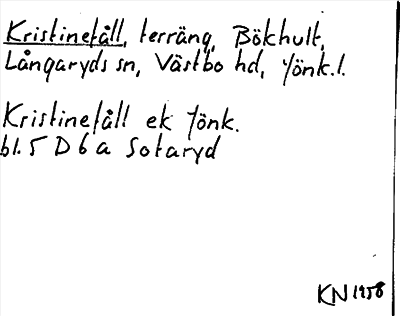 Kristinefåll, terräng, Bökhult,
Långaryds sn, Västbo hd, Jönk. l.
Kristinefåll ek Jönk.
bl. 5 D 6 a Sotaryd
KN 1958